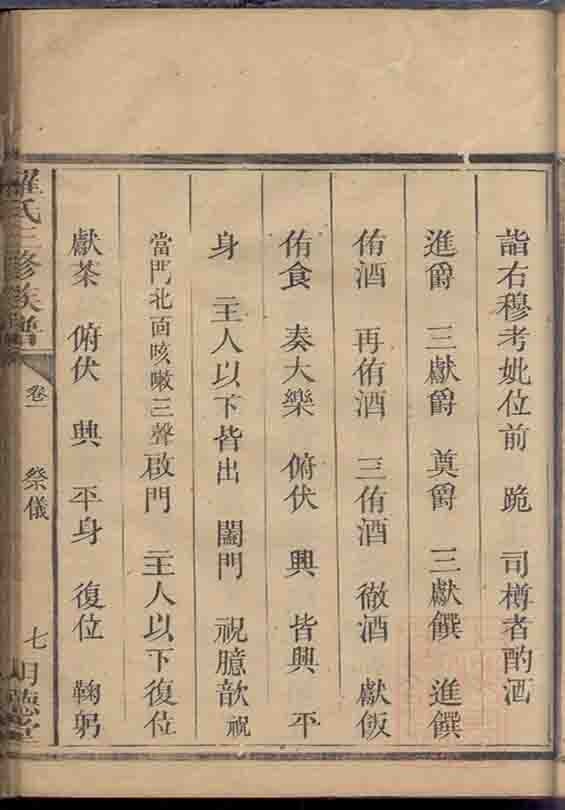 詣右穆考妣位前　跪　司樽者酌酒
進爵　三獻爵　奠爵　三獻饌　進饌
侑酒　再侑酒　三侑酒　徹酒　獻飯
侑食　奏大樂　俯伏　興　皆興　平
身　主人以下皆出　闔門　祝臆歆祝
當門北面咳嗽三聲啟門　主人以下復位
獻茶　俯伏　興　平身　復位　鞠躬
羅氏三修族譜　卷一　祭儀　七　明德堂